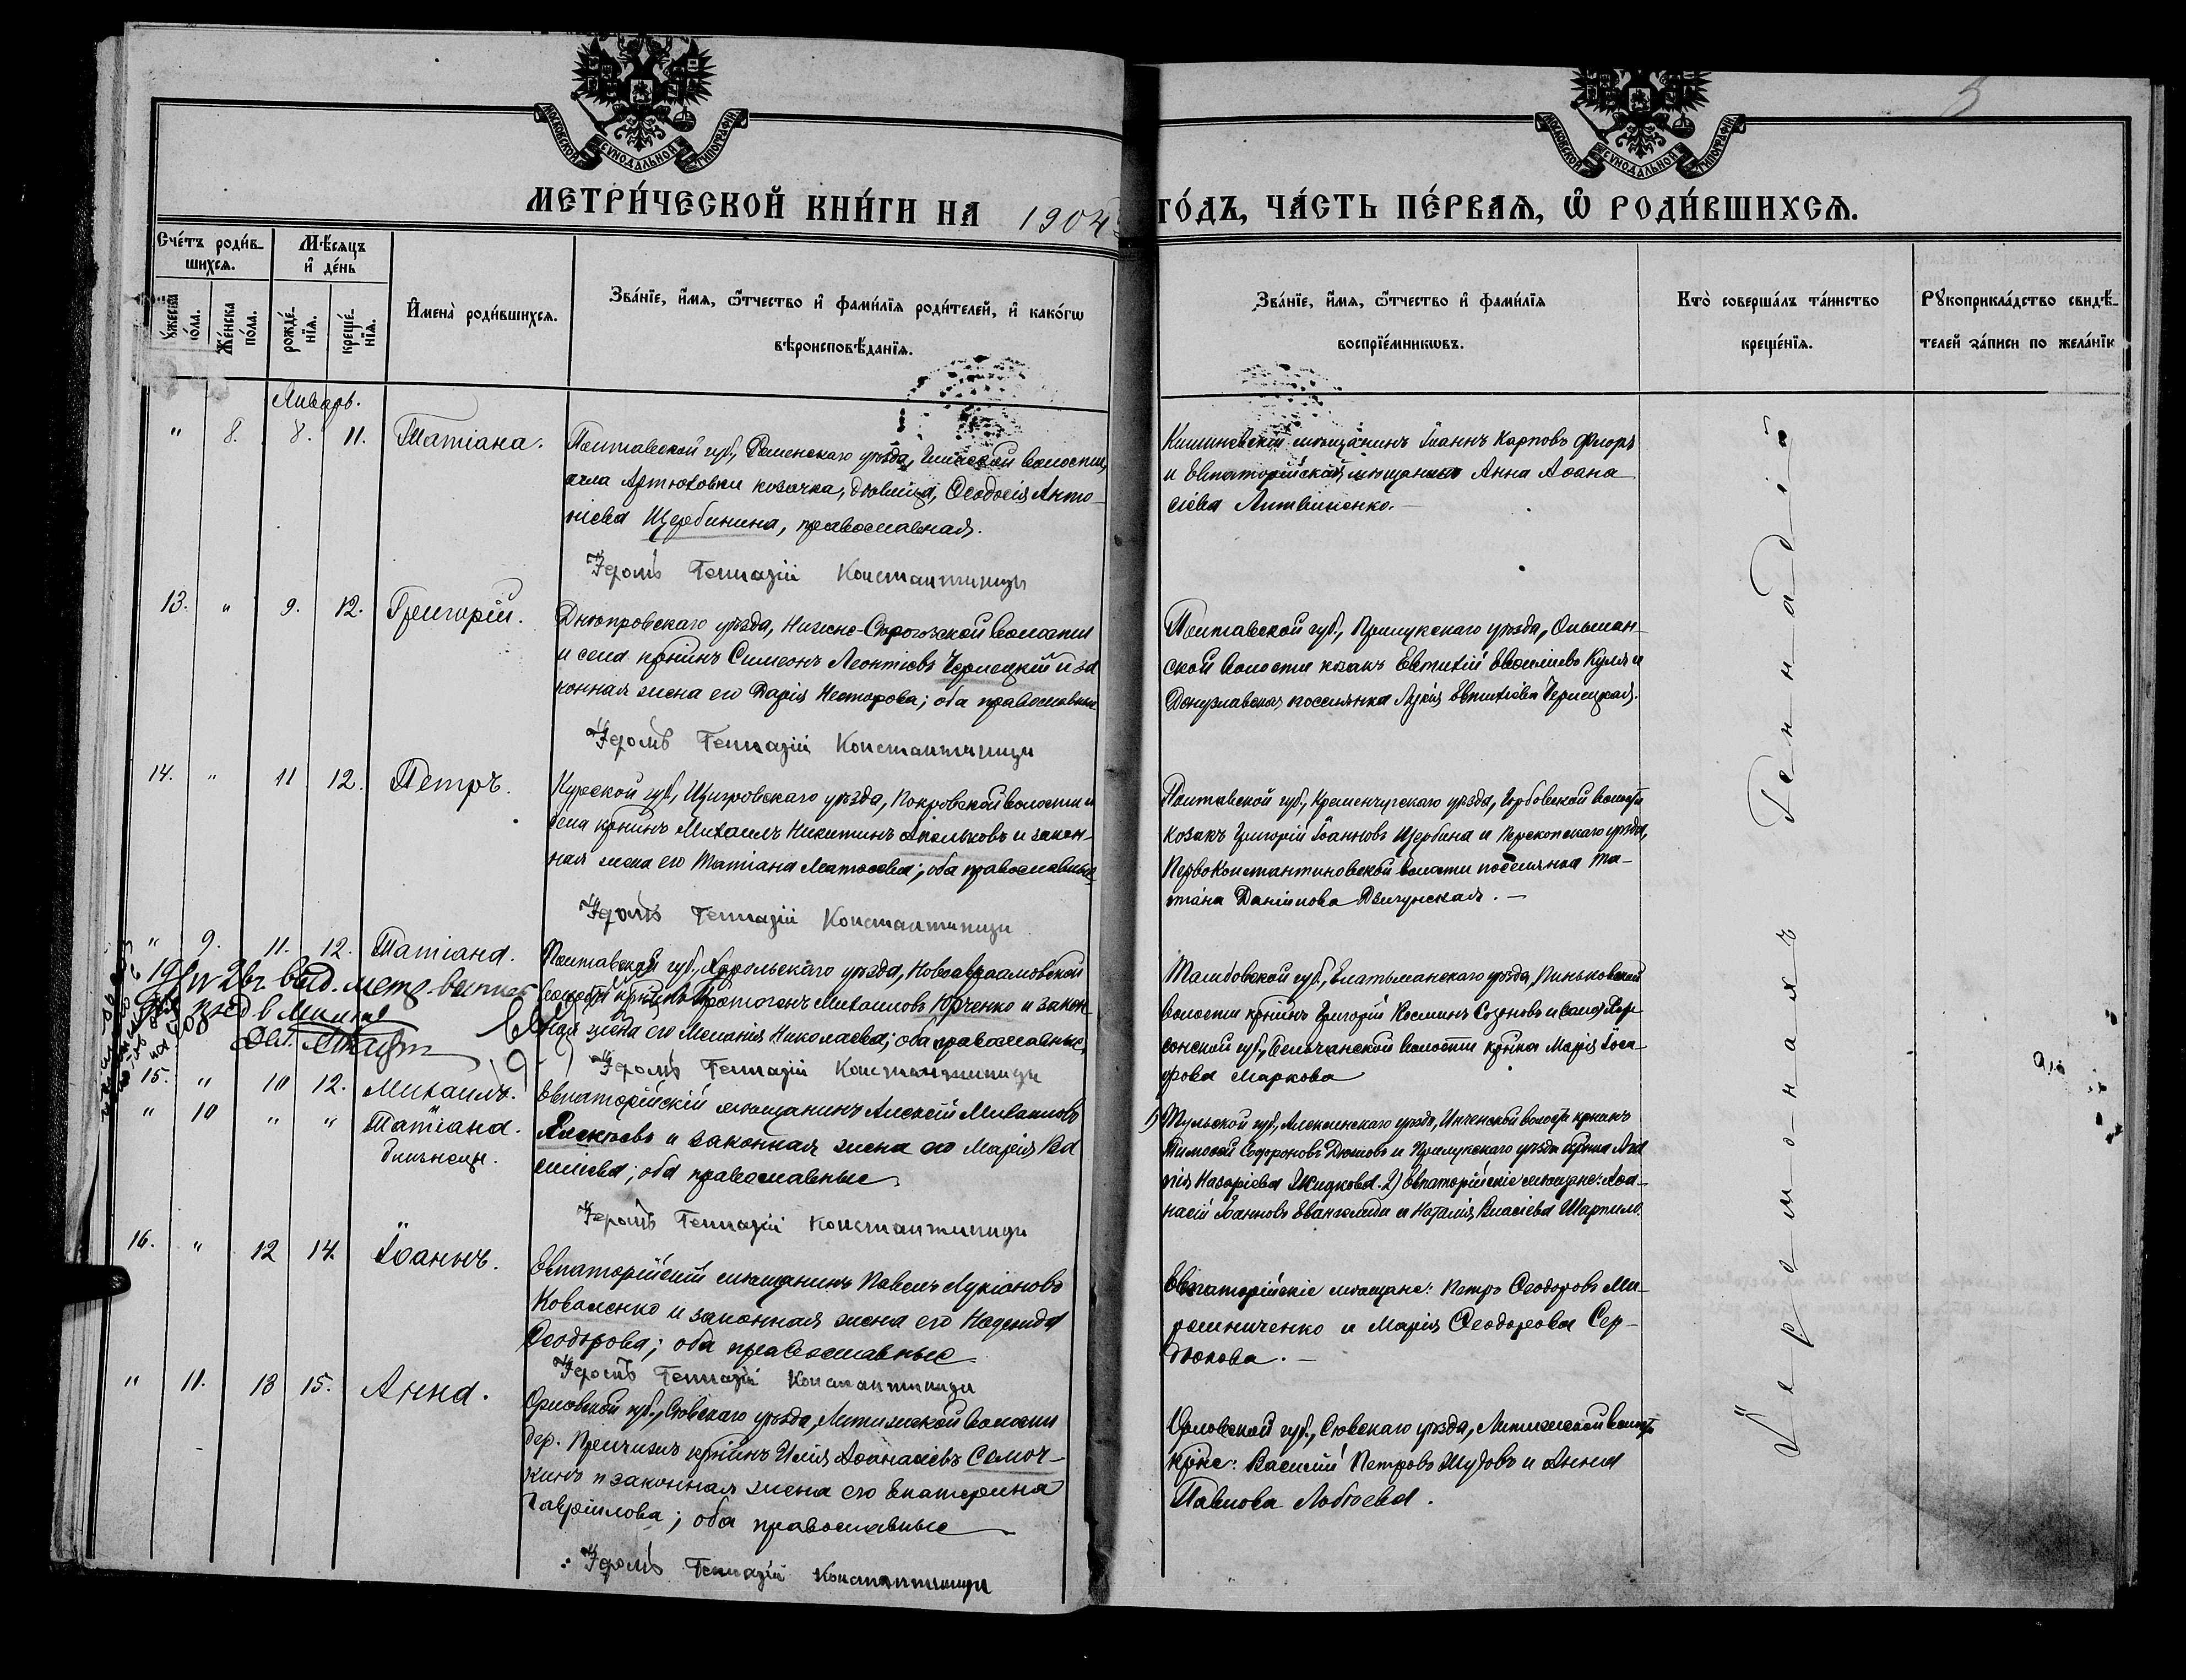 МОСКОВСКОЙ СѴНОДАЛЬНОЙ ТИПОГРАФІИ
МОСКОВСКОЙ СѴНОДАЛЬНОЙ ТИПОГРАФІИ
5
МЕТРИ́ЧЕСКОЙ КНИ́ГИ НА 1904 ГО́ДЪ, ЧА́СТЬ ПЕ́РВАѦ, Ѡ҆ РОДИ́ВШИХСѦ.
Сче́тъ роди́в-
шихсѧ.
Мѣ́сѧцъ
и҆ де́нь
ꙋ́жеска
по́ла.
Же́нска
по́ла.
рожде́-
нїѧ.
креще́-
нїѧ.
И҆мена̀ роди́вшихсѧ.
Зва́нїе, и҆́мѧ, ѻ҆́тчество и҆ фами́лїѧ роди́телей, и҆ како́гѡ
вѣроисповѣ́данїѧ.
Зва́нїе, и҆́мѧ, ѻ҆́тчество и҆ фами́лїѧ
воспрїе́мникѡвъ.
Кто̀ соверша́лъ та́инство
креще́нїѧ.
Рꙋкоприкла́дство свидѣ́-
телей за́писи по жела́нїю
Январь.
" 8. 8. 11. Татіана.
Полтавской губ., Роменскаго уѣзда, волости,
села Артюховки козачка, дѣвица, Ѳеодосія Анто-
ніева Щербинина, православная.
Іеромъ Геннадій Константиниди
Кишиневскій мѣщанинъ Іоаннъ Карповъ Флоря
и Евпаторійская мѣщанка Анна Аѳана
сіева Литвиненко.
13. " 9. 12. Григорій.
Днѣпровскаго уѣзда, Нижне-Сѣрогозской волости
и села кр-нинъ Симеонъ Леонтіевъ Чернецкій и за
конная жена его Дарія Несторова; оба православные
Іеромъ Геннадій Константиниди
Полтавской губ., Прилукскаго уѣзда, Ольшан-
ской волости козакъ Евтихій Василіевъ Куля и
Донузлавская поселянка Лукія Евтихіева Чернецкая.
14. " 11 12. Петръ.
Курской губ., Щигровскаго уѣзда, Покровской волости и
села кр-нинъ Михаилъ Никитинъ Апальковъ и закон-
ная жена его Татіана Матѳеева; оба православные
Іеромъ Геннадій Константиниди
Полтавской губ., Кременчугскаго уѣзда, волости
козакъ Григорій Іоанновъ Щербина и Перекопскаго уѣзда,
Первоконстантиновской волости поселянка Та-
тіана Даніилова
" 9. 11. 12. Татіана.
Полтавской губ., Хорольскаго уѣзда, Новоавраамовской
волости кр-нинъ Протогенъ Михаиловъ Юрченко и закон-
ная жена его Меланія Николаева; оба православные.
Іеромъ Геннадій Константиниди
Тамбовской губ., Елатьманскаго уѣзда, волости
волости кр-нинъ Григорій Косминъ Созоновъ и Хер-
сонской губ., волости кр-нка Марія
Маркова
15. " 10 12. Михаилъ.
" 10 " " Татіана.
близнецы.
Евпаторійскій мѣщанинъ Алексѣй Михаиловъ
Алексѣевъ и законная жена его Марія Ва
силіева; оба православные
Іеромъ Геннадій Константиниди
1) Тульской губ., Алексинскаго уѣзда, волости кр-нинъ
Тимоѳей Дюковъ и Прилукскаго уѣзда кр-нка
Назаріева Жидкова. 2) Евпаторійскіе мѣщане: Аѳа-
насій Іоанновъ Евангелиди и Наталія Власіева
16. " 12 14. Іоаннъ.
Евпаторійскій мѣщанинъ Павелъ Лукіановъ
Коваленко и законная жена его Надежда
Ѳеодорова; оба православные
Іеромъ Геннадій Константиниди
Евпаторійскіе мѣщане: Петръ Ѳеодоровъ Ми-
рошниченко и Марія Ѳеодорова Сер-
дюкова.
" 11. 13 15. Анна.
Орловской губ., Сѣвскаго уѣзда, Литижской волости
дер. кр-нинъ Илія Аѳанасіевъ Самоч-
кинъ и законная жена его Екатерина
Гавріилова; оба православные
Іеромъ Геннадій Константиниди
Орловской губ., Сѣвскаго уѣзда, Литижской волости
кр-не: Василій Петровъ Шудовъ и Анна
Павлова
Іеромонахъ Геннадій